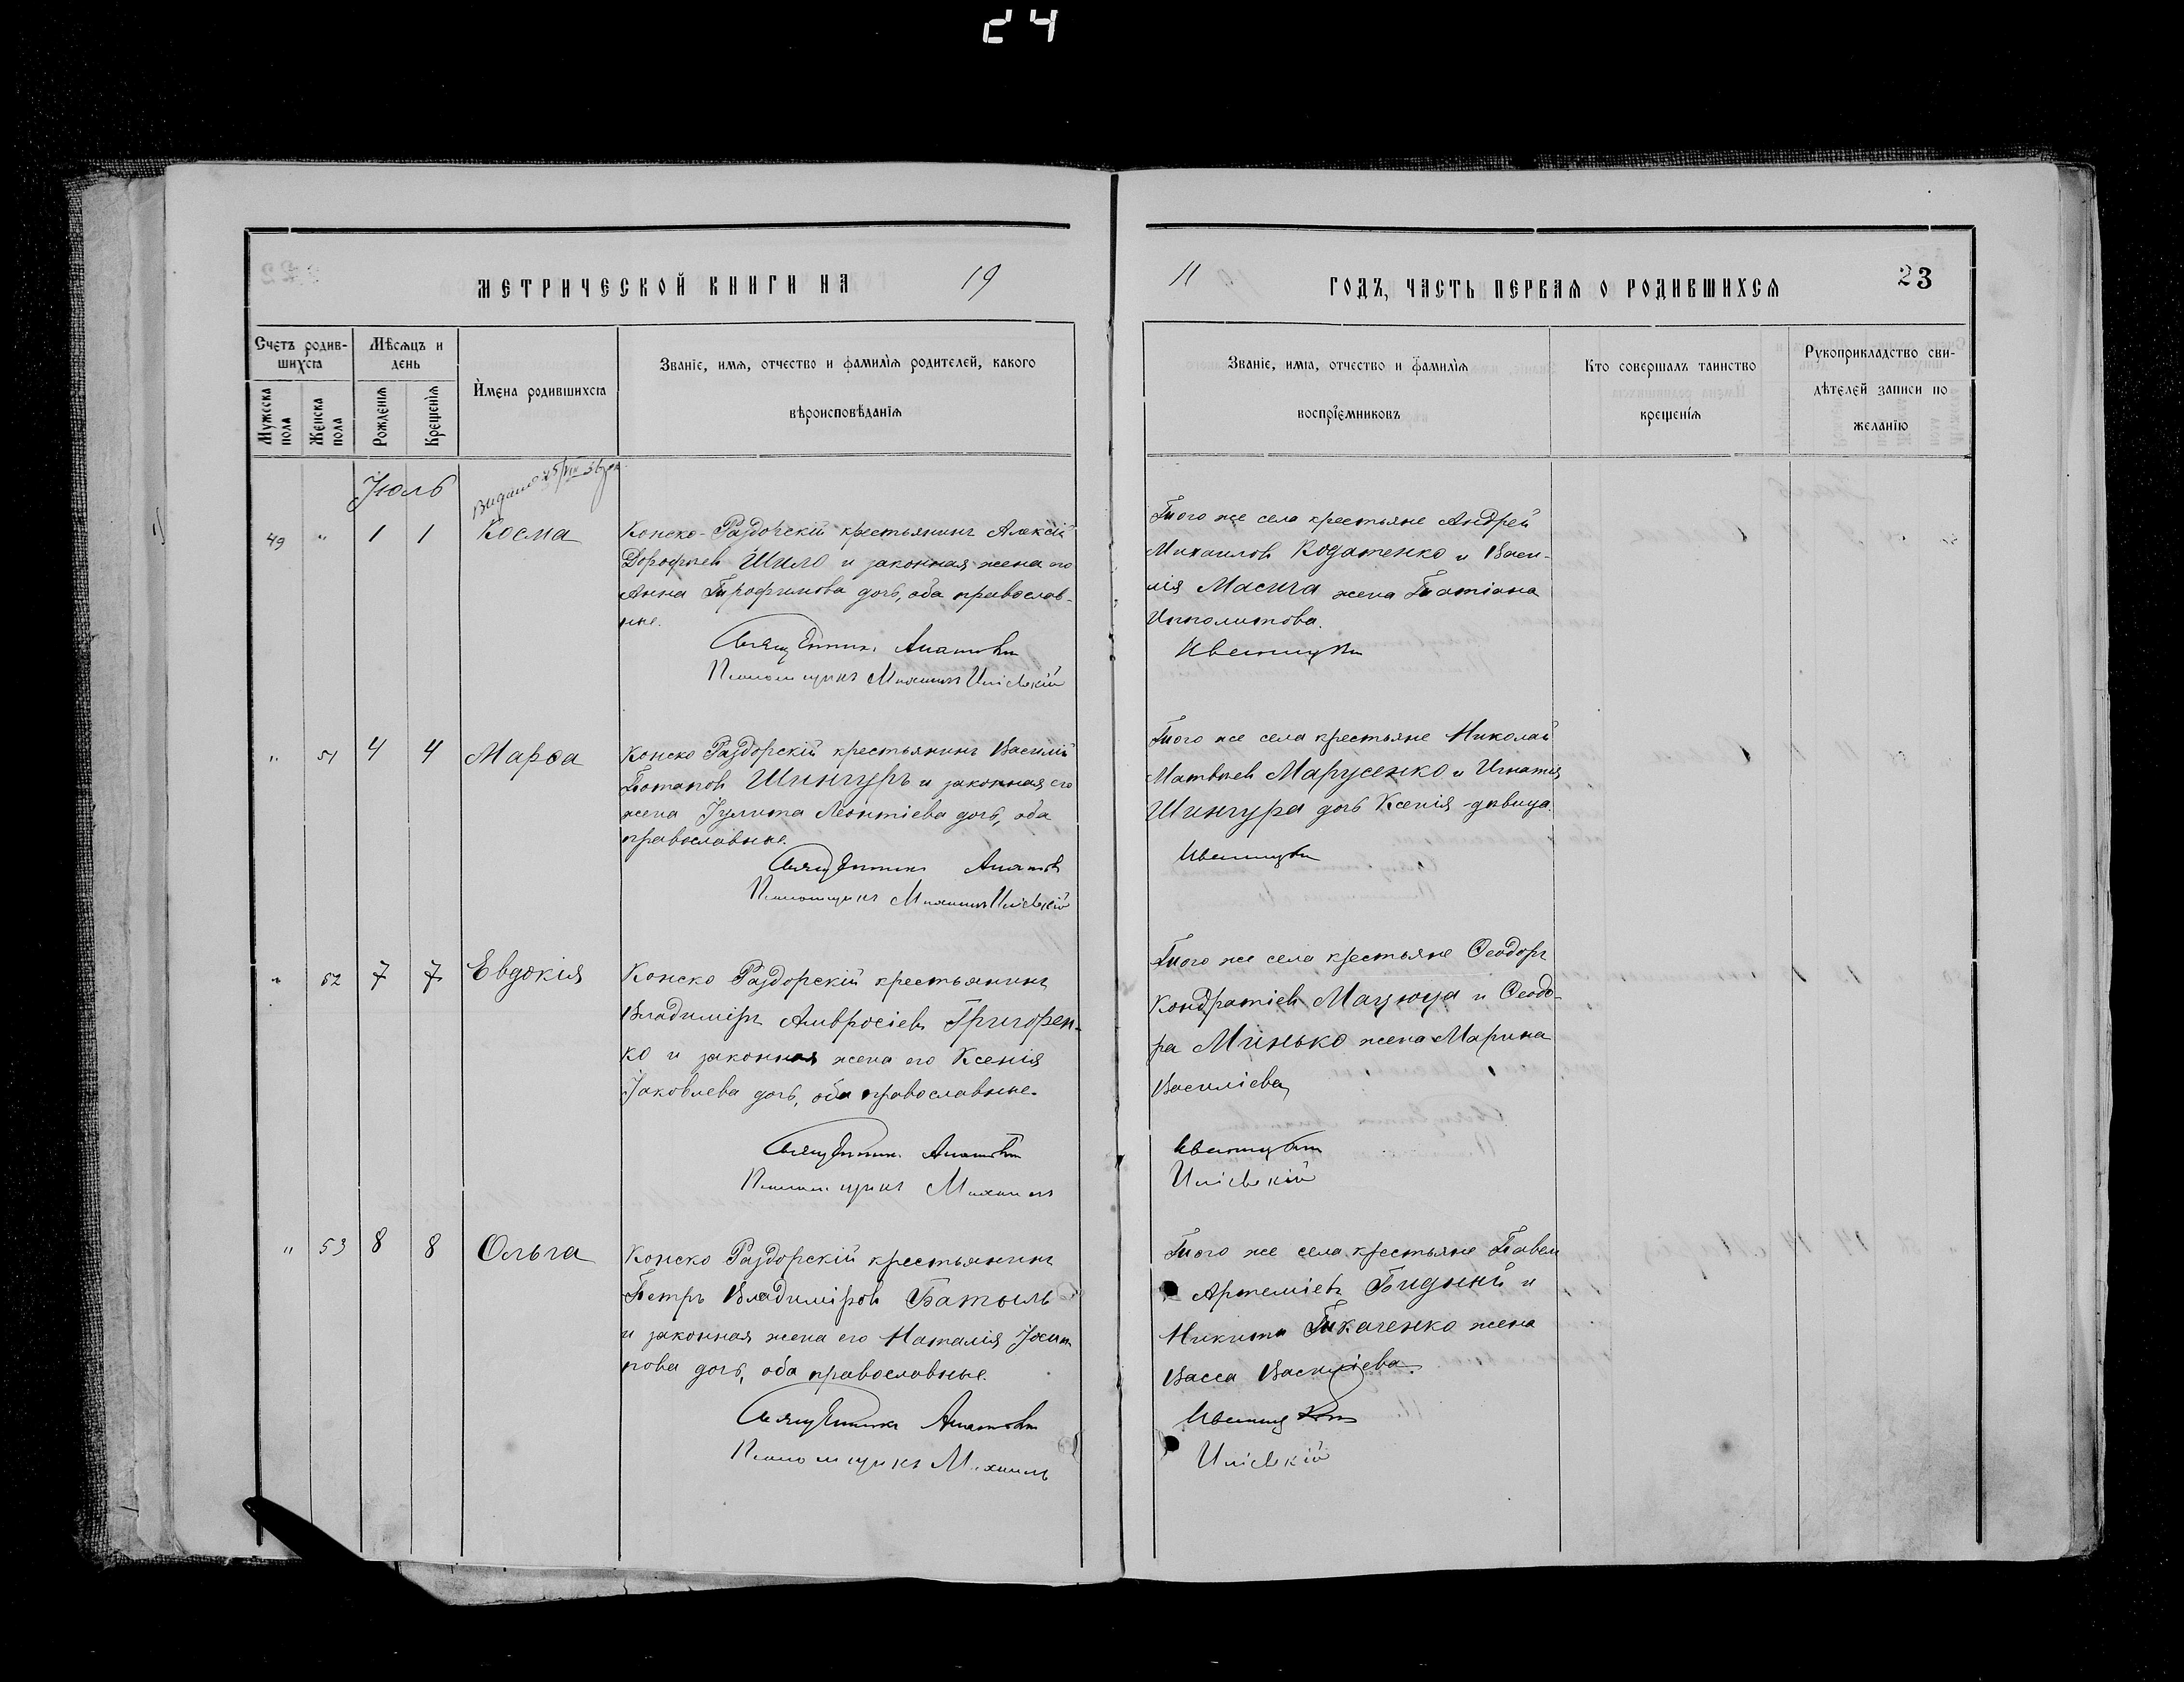 24
МЕТРИЧЕСКОЙ КНИГИ НА 19
11 ГОДЪ, ЧАСТЬ ПЕРВАЯ О РОДИВШИХСЯ 23
Счетъ родив-
шихся
Мѣсяцъ и
день
Мужеска
пола
Женска
пола
Рожденія
Крещенія
Имена родившихся
Званіе, имя, отчество и фамилія родителей, какого
вѣроисповѣданія
Званіе, имя, отчество и фамилія
воспріемниковъ
Кто совершалъ таинство
крещенія
Рукоприкладство сви-
дѣтелей записи по
желанію
Іюль
49 " 1 1 Косма
Конско-Раздорскій крестьянинъ Алексій
Дорофѣевъ Шило и законная жена его
Анна Трофимова дочь, оба православ-
ные.
Священникъ
Псаломщикъ Михаилъ
Того же села крестьяне Андрей
Михаиловъ Водатенко и Васи-
лія Масича жена Татіана
Ипполитова.
" 51 4 4 Марѳа
Конско Раздорскій крестьянинъ Василій
Потаповъ Шингуръ и законная его
жена Іулита Леонтіева дочь, оба
православные.
Священникъ
Псаломщикъ Михаилъ
Того же села крестьяне Николай
Матвѣевъ Марусенко и Игнатія
Шингура дочь Ксенія-дѣвица.
" 52 7 7 Евдокія
Конско Раздорскій крестьянинъ
Владиміръ Амвросіевъ Григорен-
ко и законная жена его Ксенія
Іаковлева дочь, оба православные.
Священникъ
Псаломщикъ Михаилъ
Того же села крестьяне Ѳеодоръ
Кондратіевъ Мацюца и Ѳеодо-
ра Минько жена Марина
Василіева
" 53 8 8 Ольга
Конско Раздорскій крестьянинъ
Петръ Владиміровъ Батыль
и законная жена его Наталія Іоси-
пова дочь, оба православные.
Священникъ
Псаломщикъ Михаилъ
Того же села крестьяне Павелъ
Артеміевъ Бидный и
Никиты Ткаченко жена
Васса Василіева.